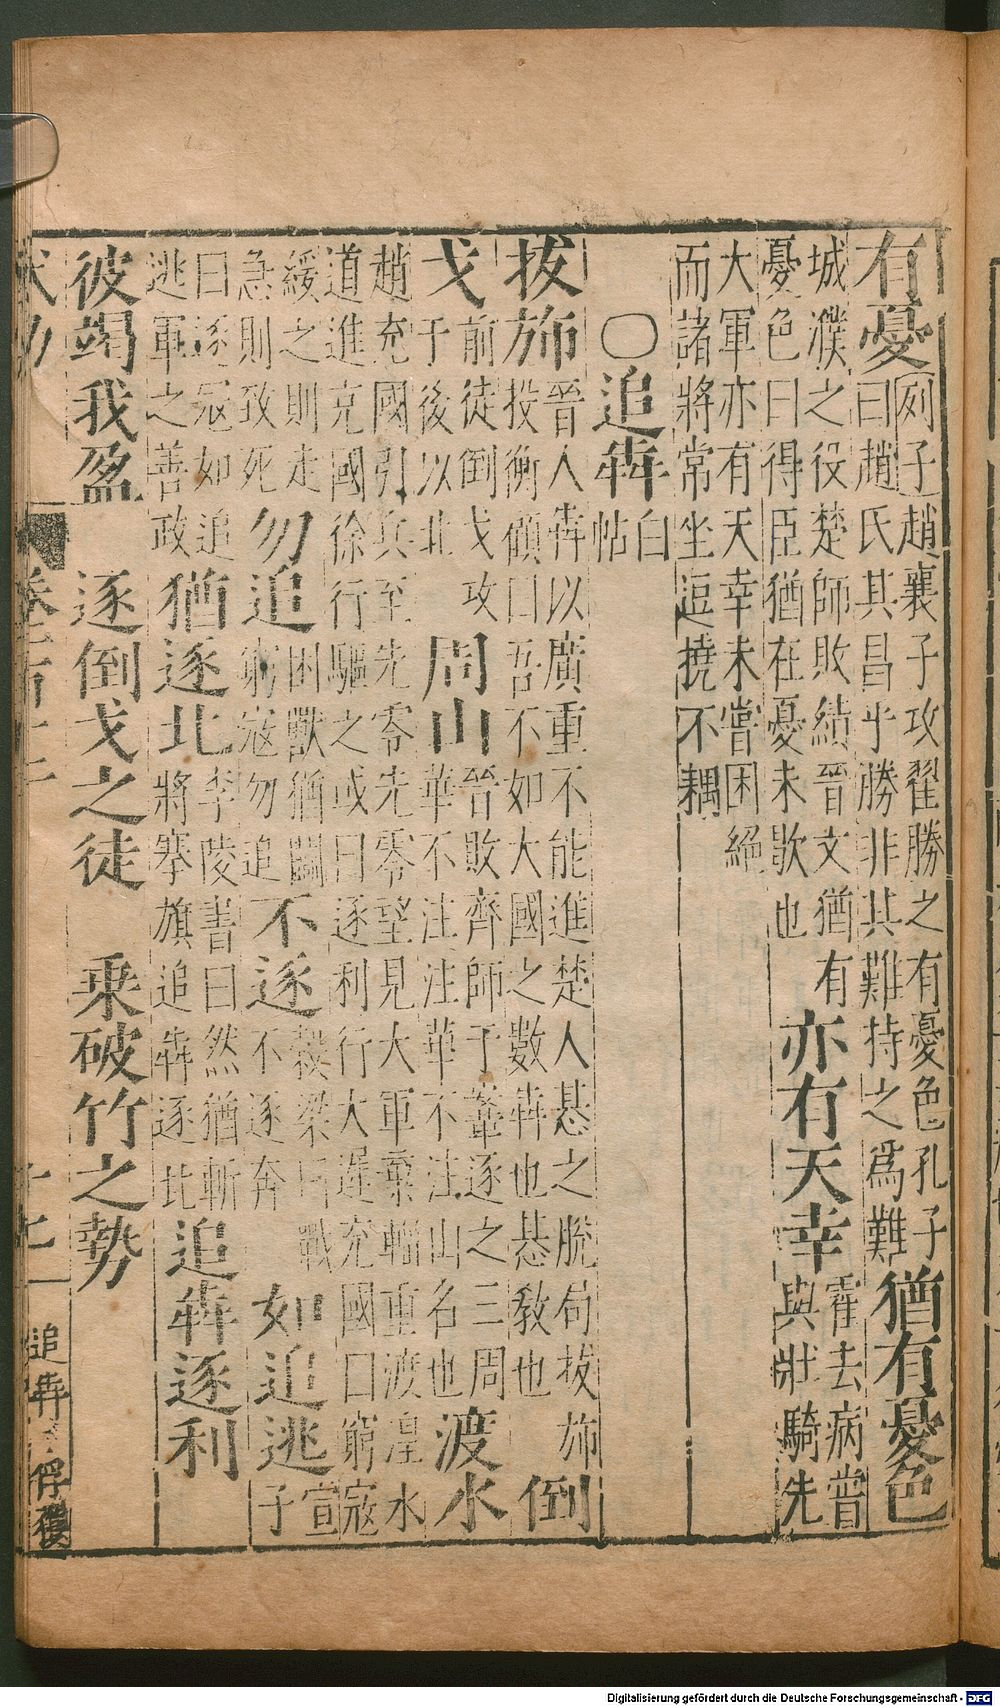 有憂 列子趙襄子攻翟勝之有憂色孔子
曰趙氏其昌乎勝非其難持之爲難 猶有憂色
城濮之役楚師敗績晉文猶有
憂色曰得臣猶在憂未歇也 亦有天幸 霍去病嘗
與壯騎先
大軍亦有天幸未嘗困絕
而諸將常坐逗撓不耦
○追犇 白
帖
拔斾 晉人犇以廣重不能進楚人惎之脫扃拔斾
投衡顧曰吾不如大國之數犇也惎教也 倒
戈 前徒倒戈攻
于後以北 周山 晉敗齊師于鞌逐之三周
華不注注華不注山名也 渡水
趙充國引兵至先零先零望見大軍棄輜重渡湟水
道進充國徐行驅之或曰逐利行大遲充國曰窮寇
緩之則走
急則致死 勿追 困獸猶鬭
窮寇勿追 不逐 穀梁曰戰
不逐奔 如追逃 宣
子
曰逐寇如追
逃軍之善政 猶逐北 李陵書曰然猶斬
將搴旗追犇逐北 追犇逐利
彼竭我盈 逐倒戈之徒 乘破竹之勢
追犇 俘獲
Digitalisierung gefördert durch die Deutsche Forschungsgemeinschaft - DFG